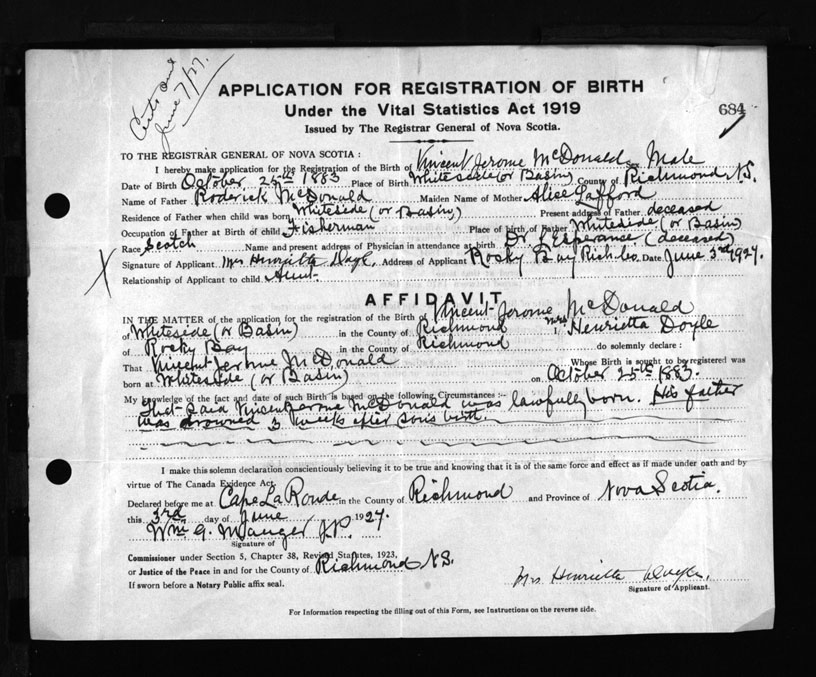 Certs and
June 7/27.
APPLICATION FOR REGISTRATION OF BIRTH
Under the Vital Statistics Act 1919
684
Issued by The Registrar General of Nova Scotia.
TO THE REGISTRAR GENERAL OF NOVA SCOTIA :
I hereby make application for the Registration of the Birth of Vincent Jerome McDonald Sex Male
Date of Birth October 25th 1883 Place of Birth Whiteside (or Basin) County of Richmond N.S.
Name of Father Roderick McDonald Maiden Name of Mother Alice Lafford
Residence of Father when child was born Whiteside (or Basin) Present address of Father deceased
Occupation of Father at Birth of child Fisherman Place of birth of Father Whiteside (or Basin)
Race Scotch Name and present address of Physician in attendance at birth Dr L'Esperance (deceased)
X Signature of Applicant Mrs Henrietta Address of Applicant Rocky Bay Rich. Co. Date June 3rd 1927.
Relationship of Applicant to child Aunt.
AFFIDAVIT
IN THE MATTER of the application for the registration of the Birth of Vincent Jerome McDonald
of Whiteside (or Basin) in the County of Richmond I, Mrs Henrietta Doyle
of Rocky Bay in the County of Richmond do solemnly declare :
That Vincent Jerome McDonald Whose Birth is sought to be registered was
born at Whiteside (or Basin) on October 25th 1883.
My knowledge of the fact and date of such Birth is based on the following Circumstances :—
That Said Vincent Jerome McDonald was lawfully born. His father
was drowned 3 weeks after sons birth.
I make this solemn declaration conscientiously believing it to be true and knowing that it is of the same force and effect as if made under oath and by
virtue of The Canada Evidence Act.
Declared before me at Cape La Ronde in the County of Richmond and Province of Nova Scotia.
this 3rd day of June 1927.
Wm G. Mauger J.P.
Signature of
Commissioner under Section 5, Chapter 38, Revised Statutes, 1923,
or Justice of the Peace in and for the County of Richmond N.S.
If sworn before a Notary Public affix seal.
Mrs Henrietta
Signature of Applicant.
For Information respecting the filling out of this Form, see Instructions on the reverse side.